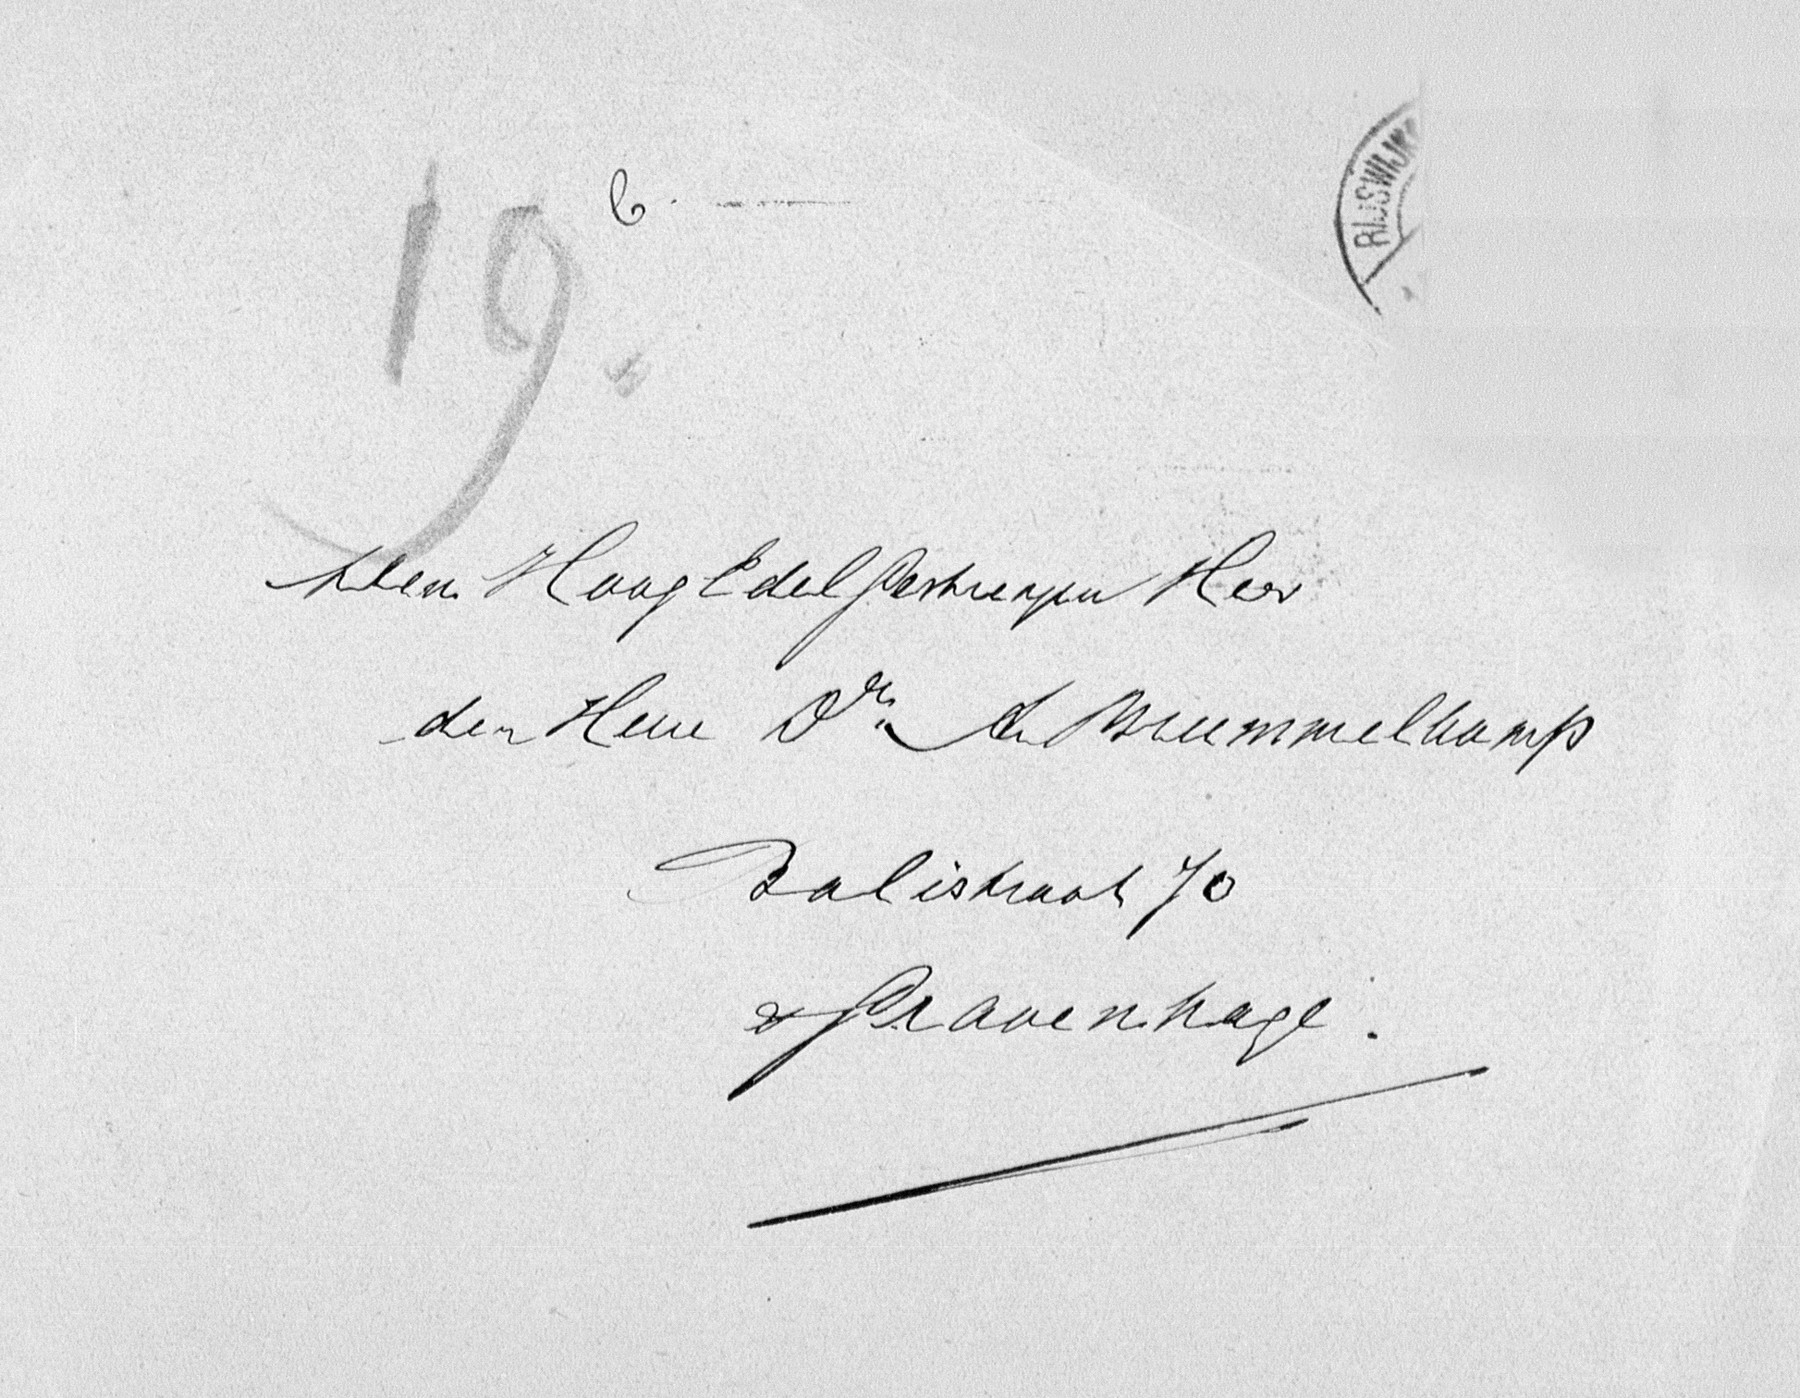 19.
b.
RIJSWIJK
Den HoogEdelGestrengen Heer
den Heere Dr. A Brummelkamp
Balistraat 70
s'Gravenhage.